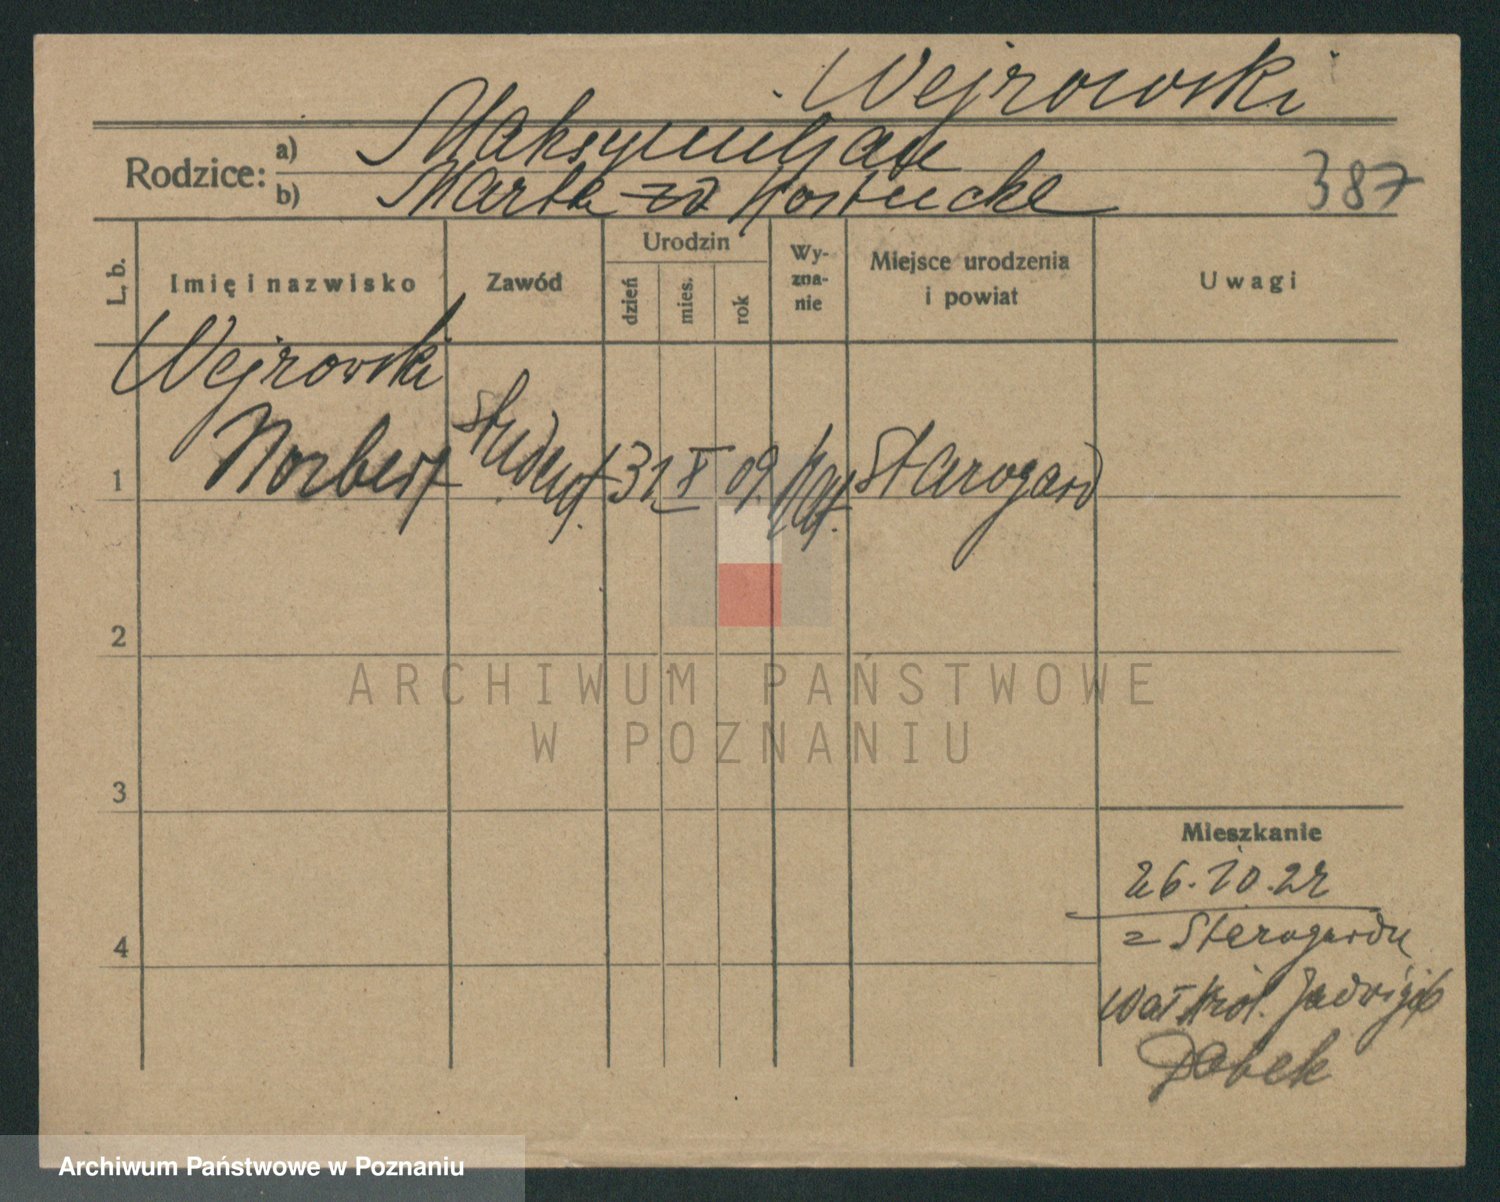 Wejrowski
Rodzice: a) Maksymiljan
b) Marta zd
387
L. b.
Imię i nazwisko
Zawód
Urodzin
dzień
mies.
rok
Wy-
zna-
nie
Miejsce urodzenia
i powiat
Uwagi
Wejrowski
1 Norbert student 31 X 09. kat. Starogard
2
ARCHIWUM PAŃSTWOWE
W POZNANIU
3
Mieszkanie
26.10.27
z Starogardu
4
Wał Król. Jadwigi
Dabek
Archiwum Państwowe w Poznaniu